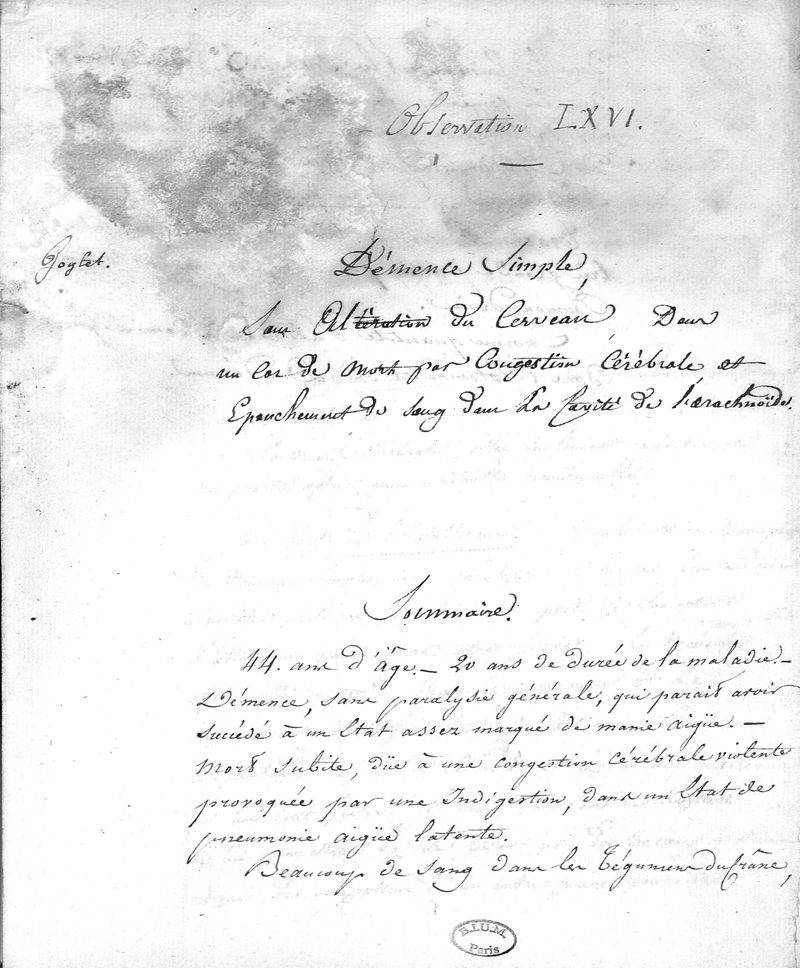 Observation LXVI.
Démence Simple,
Sans Altération du Cerveau, Dans
un Cas de Mort par Congestion Cérébrale et
Epanchement de Sang dans la Cavité de l'arachnoïde.
Sommaire.
44. ans d'Âge. – 20 ans de durée de la maladie. –
Démence, sans paralysie générale, qui parait avoir
succédé à un Etat assez marqué de manie aigüe. –
Mort subite, düe à une congestion cérébrale violente
provoquée par une Indigestion, dans un Etat de
pneumonie aigüe latente.
Beaucoup de sang dans les Tégumens du Crâne,
B.I.U.M.
Paris